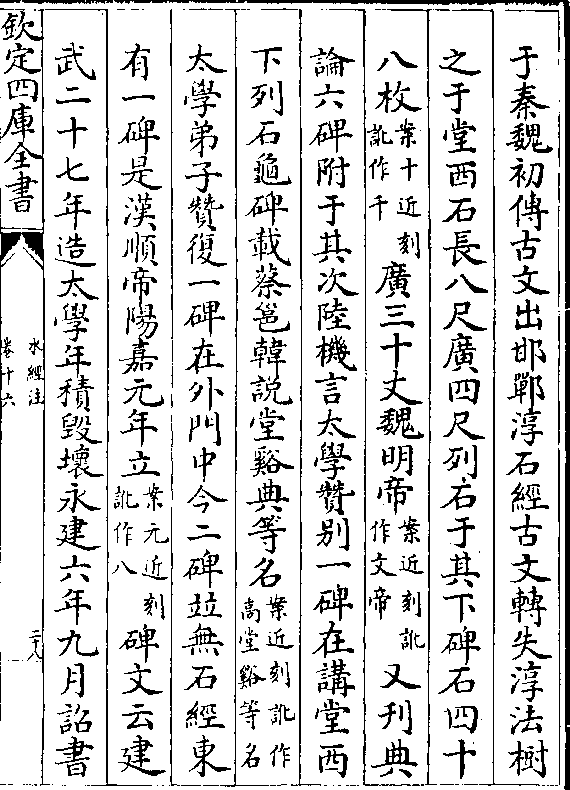 于秦魏初傳古文出邯鄲淳石經古文轉失淳法樹
之于堂西石長八尺廣四尺列石于其下碑石四十
八枚案十近刻訛作千廣三十丈魏明帝案近刻訛作文帝又刋典
論六碑附于其次陸機言太學贊别一碑在講堂西
下列石龜碑載蔡邕韓説堂谿典等名案近刻訛作高堂谿等名
太學弟子贊復一碑在外門中今二碑竝無石經東
有一碑是漢順帝陽嘉元年立案元近刻訛作八碑文云建
武二十七年造太學年積毀壞永建六年九月詔書
欽定四庫全書
水經注
卷十六
二十八